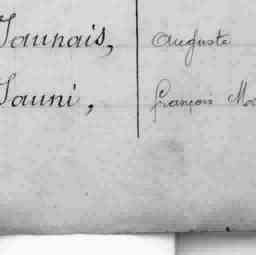 Jaunais, Auguste
Jauni, François